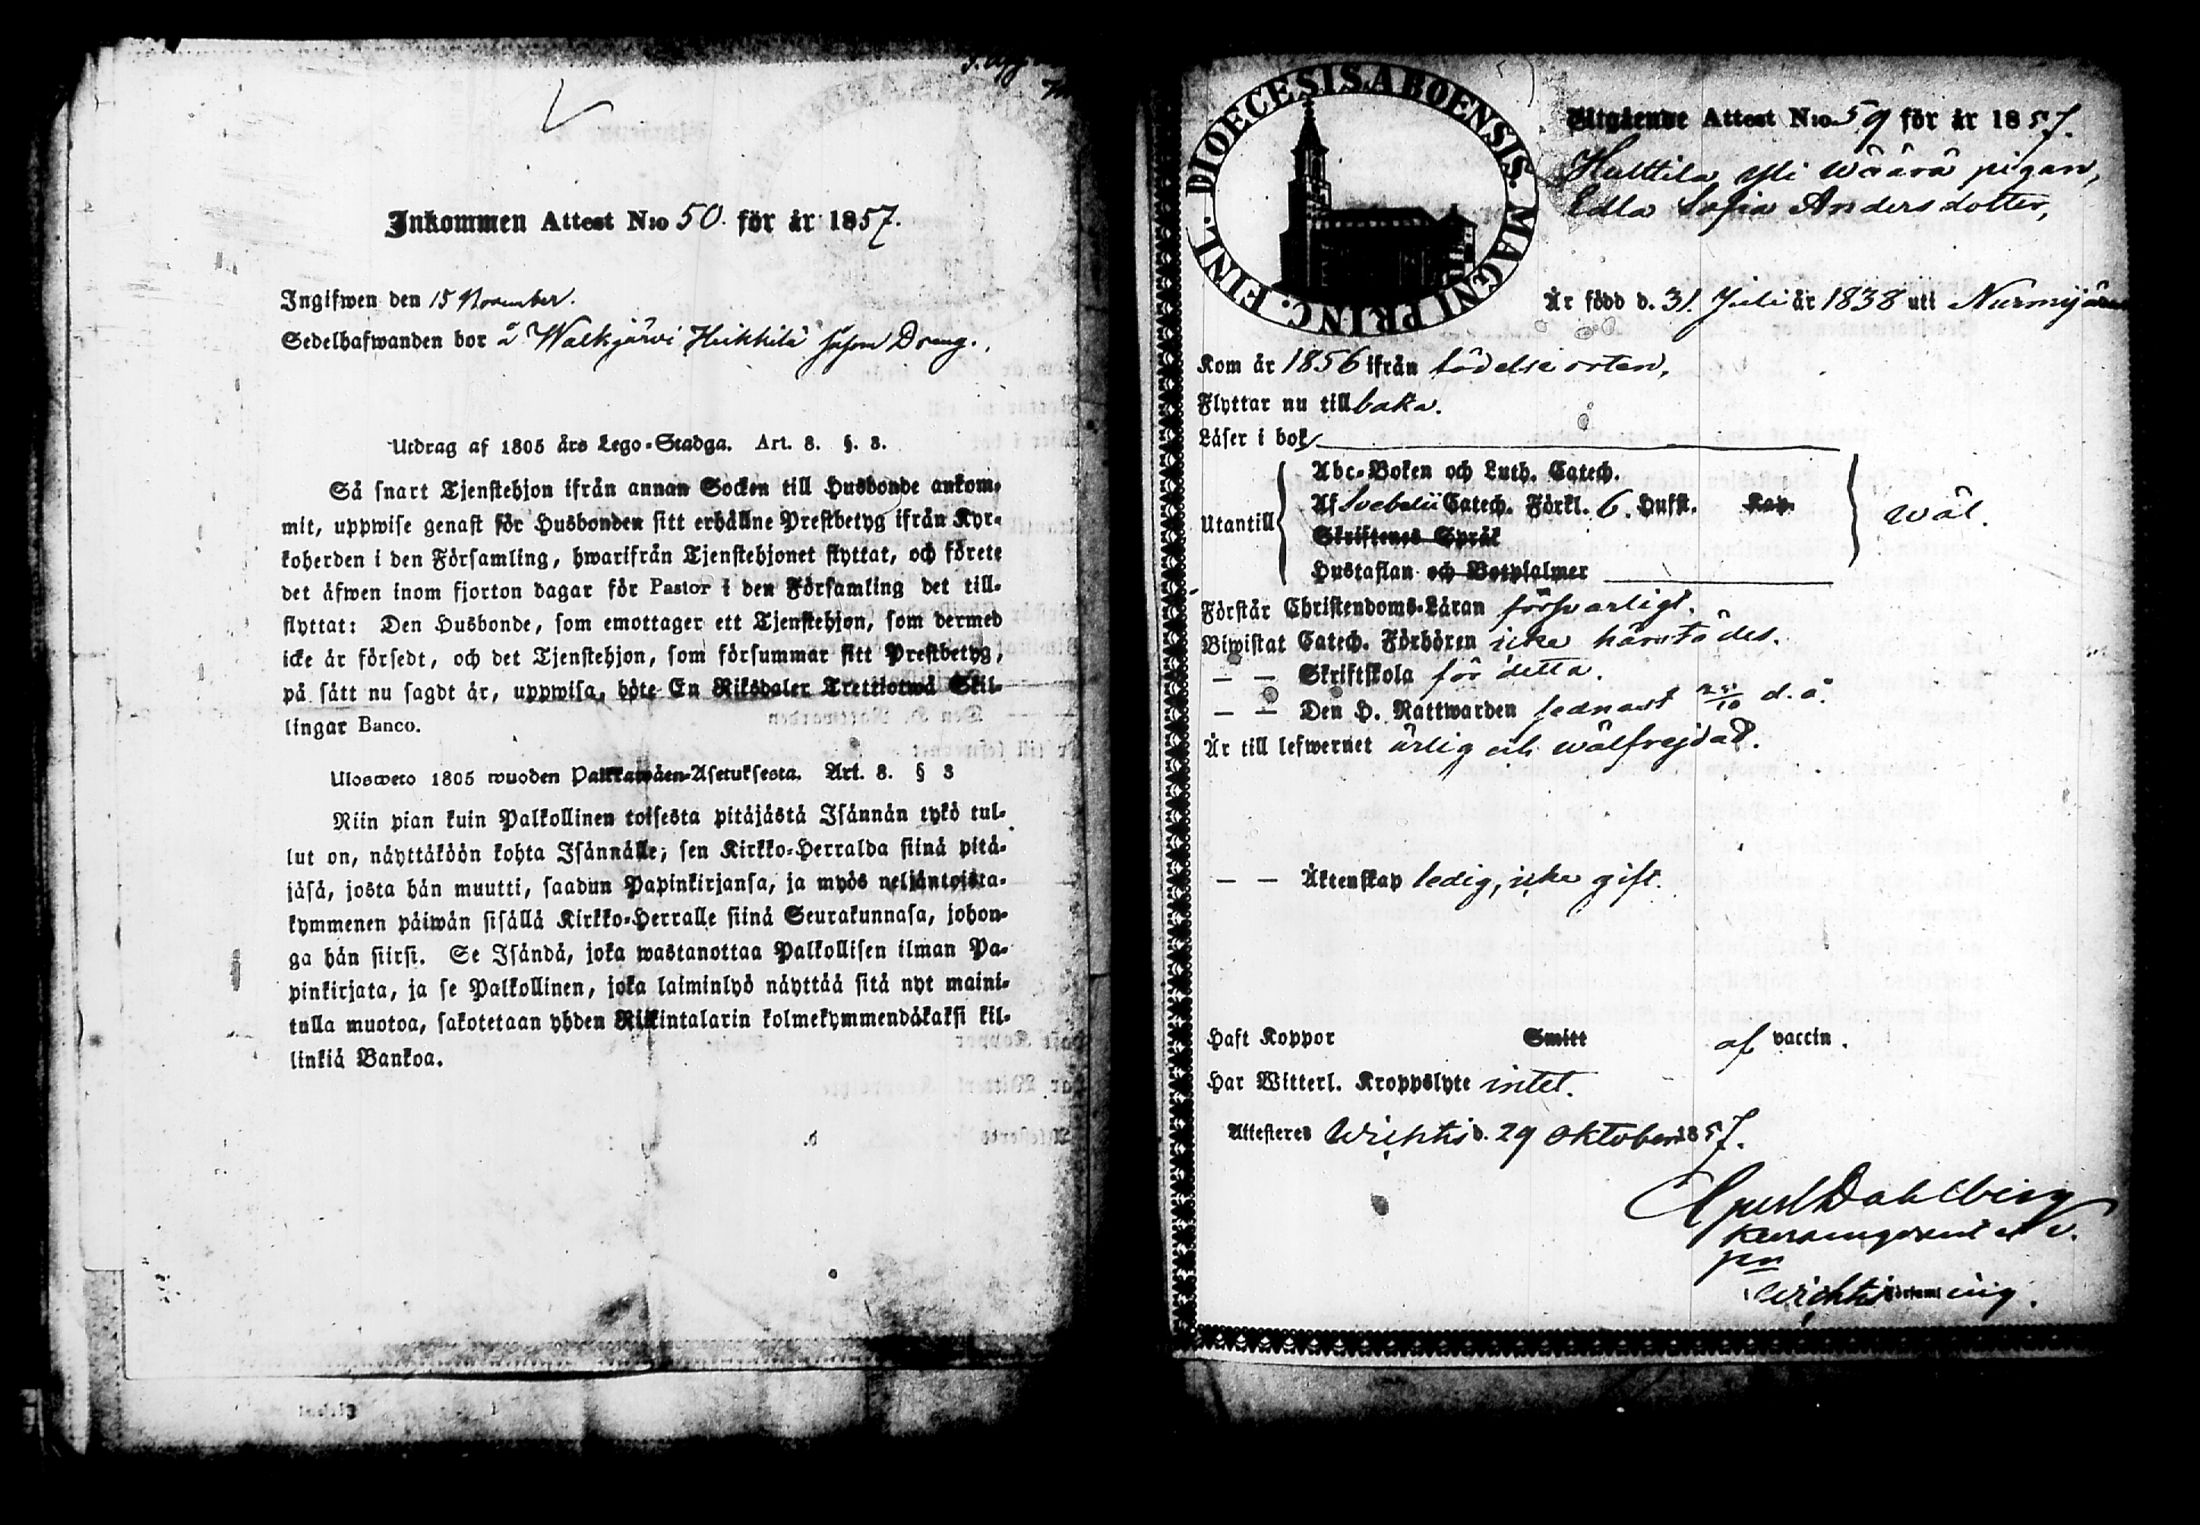 Inkommen Attest N:o 50. för år 1857.
Ingifwen den 15 November.
Sedelhafwanden bor å Walkjärvi Heikkilä såsom Dreng.
Utdrag af 1805 års Lego-Stadga. Art. 8. §. 3.
Så snart Tjenstehjon ifrån annan Socken till Husbonde ankom-
mit, uppwise genast för Husbonden sitt erhållne Prestbetyg ifrån Kyr-
koherden i den Församling, hwarifrån Tjenstehjonet flyttat, och förete
det äfwen inom fjorton dagar för Pastor i den Församling det till-
flyttat: Den Husbonde, som emottager ett Tjenstehjon, som dermed
icke är försedt, och det Tjenstehjon, som försummar sitt Prestbetyg,
på sätt nu sagdt är, uppwisa, böte En Riksdaler Trettiotwå Skil-
lingar Banco.
Ulosweto 1805 wuoden Palkkawäen-Asetuksesta. Art. 8. § 3
Niin pian kuin Palkollinen toisesta pitäjästä Isännän tykö tul-
lut on, näyttäköön kohta Isännälle, sen Kirkko-Herralda siinä pitä-
jäsä, josta hän muutti, saadun Papinkirjansa, ja myös neljäntoista-
kymmenen päiwän sisällä Kirkko-Herralle siinä Seurakunnasa, johon-
ga hän siirsi. Se Isändä, joka wastanottaa Palkollisen ilman Pa-
pinkirjata, ja se Palkollinen, joka laiminlyö näyttää sitä nyt maini-
tulla muotoa, sakotetaan yhden Riikintalarin kolmekymmendäkaksi kil-
linkiä Bankoa.
DIOECESIS ABOENSIS. MAGNI PRINC. FINL.
Utgående Attest N:o 59 för år 1857.
Hulttila Yli Wäärä pigan,
Edla Sofia Andersdotter,
Är född d. 31. Juli år 1838 uti Nurmijärvi
Kom år 1856 ifrån födelseorten,
Flyttar nu tillbaka.
Läser i bok
Utantill
Abc-Boken och Luth. Catech.
Af Svebelii Catech. Förkl. 6. Hufst. Kap.
Skriftenes Språk
Hustaflan och Botpsalmer
wäl.
Förstår Christendoms-Läran försvarligt.
Biwistat Catech. Förhören icke härstädes.
— — Skriftskola för detta.
— — Den H. Nattwarden sednast 25/10 d. å.
Är till lefwernet ärlig och wälfrejdad.
— — Äktenskap ledig, icke gift.
Haft Koppor Smitt af vaccin.
Har Witterl. Kroppslyte intet.
Attesteras Wichtis d. 29 Oktober 1857.
Dahlberg
Wichtis Församling.